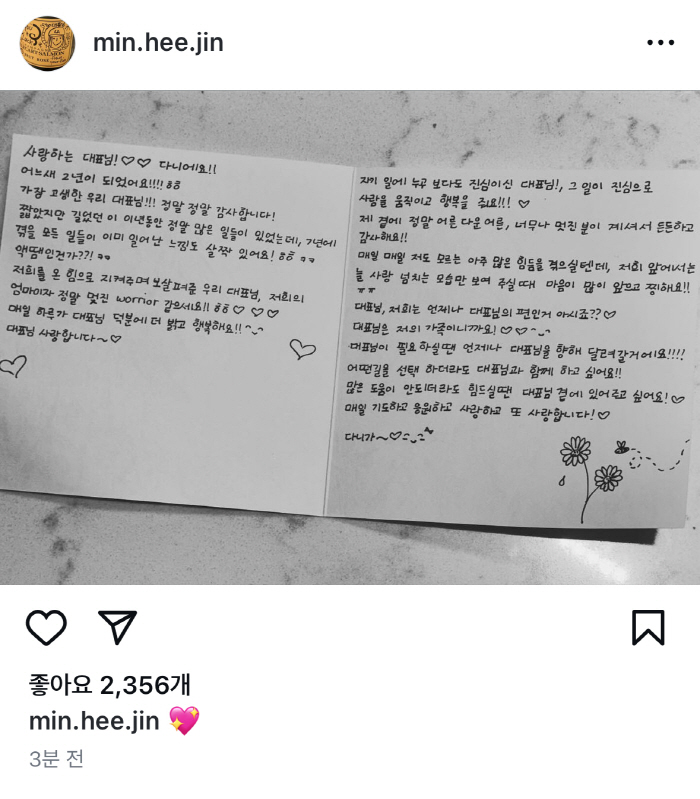 min.hee.jin
사랑하는 대표님!♡♡ 다니에요!!
어느새 2년이 되었어요!!!! ㅎㅎ
가장 고생한 우리 대표님!!! 정말 정말 감사합니다!
짧았지만 길었던 이 이년동안 정말 많은 일들이 있었는데, 7년에
겪을 모든 일들이 이미 일어난 느낌도 살짝 있어요! ㅎㅎ
액땜인건가??!
저희를 온 힘으로 지켜주며 보살펴준 우리 대표님, 저희의
엄마이자 정말 멋진 worrior 같으셔요!! ㅎㅎ ♡ ♡ ♡
매일 하루가 대표님 덕분에 더 밝고 행복해요!! ^-^
대표님 사랑합니다~♡
자기 일에 누구 보다도 진심이신 대표님!, 그 일이 진심으로
사람을 움직이고 행복을 줘요!!! ♡
제 곁에 정말 어른 다운 어른, 너무나 멋진 분이 계셔서 든든하고
감사해요!!
매일 매일 저도 모르는 아주 많은 힘듦을 겪으실텐데, 저희 앞에서는
늘 사랑 넘치는 모습만 보여 주실때 마음이 많이 앞으고 찡해요!!
ㅠㅠ
대표님, 저희는 언제나 대표님의 편인거 아시죠??♡
대표님은 저의 가족이니까요!♡♡^-^
대표님이 필요하실땐 언제나 대표님을 향해 달려갈거에요!!!!
어떤길을 선택 하더라도 대표님과 함께 하고 싶어요!!
많은 도움이 안되더라도 힘드실땐 대표님 곁에 있어주고 싶어요!♡
매일 기도하고 응원하고 사랑하고 또 사랑합니다!♡
다니가~♡
좋아요 2,356개
min.hee.jin 💖
3분 전